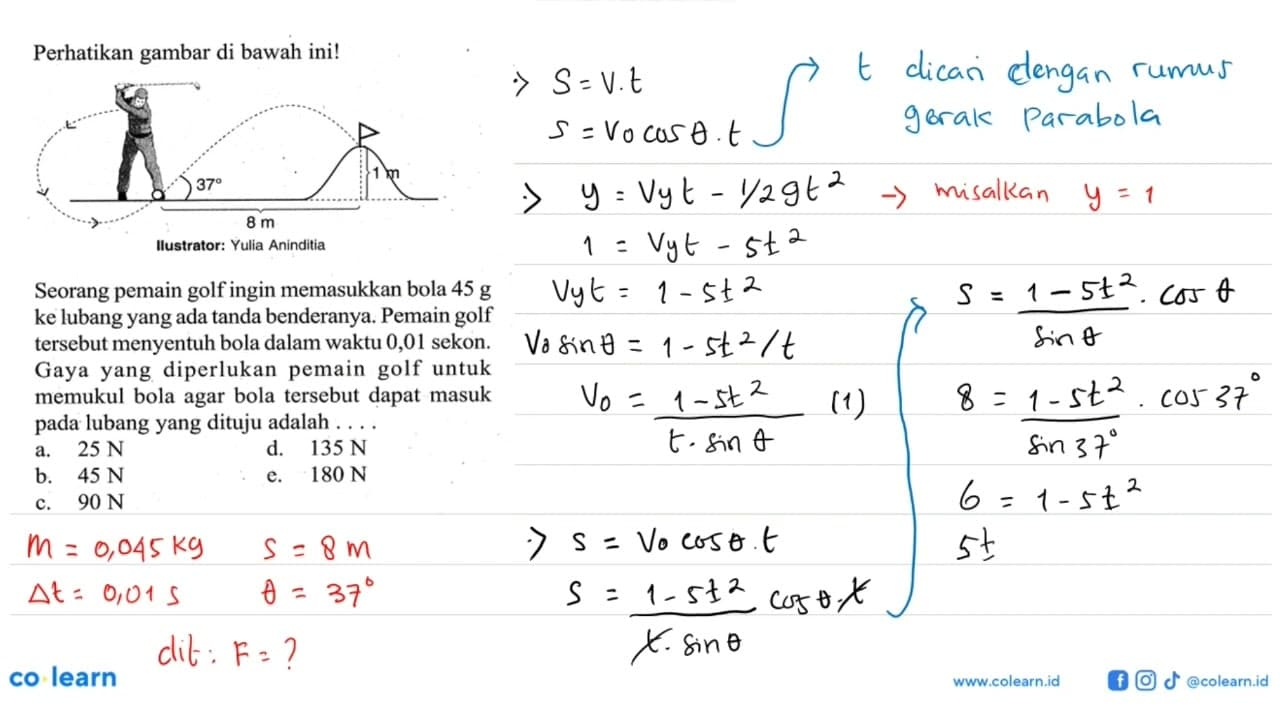 Perhatikan gambar di bawah ini!
37°
1 m
8 m
Ilustrator: Yulia Aninditia
Seorang pemain golf ingin memasukkan bola 45 g
ke lubang yang ada tanda benderanya. Pemain golf
tersebut menyentuh bola dalam waktu 0,01 sekon.
Gaya yang diperlukan pemain golf untuk
memukul bola agar bola tersebut dapat masuk
pada lubang yang dituju adalah . . . .
a. 25 N
b. 45 N
c. 90 N
d. 135 N
e. 180 N
m = 0,045 kg
Δt = 0,01 s
s = 8 m
θ = 37°
dit : F = ?
S = V.t
S = Vo cos θ . t
t dicari dengan rumus
gerak parabola
y = Vyt - 1/2gt²
→ misalkan y = 1
1 = Vyt - 5t²
Vyt = 1 - 5t²
Vo sin θ = 1 - 5t²/t
Vo = 1 - 5t² / t. sin θ (1)
s = Vo cos θ . t
s = 1 - 5t² / t. sin θ cos θ . t
s = 1 - 5t² / sin θ . cos θ
8 = 1 - 5t² / sin 37° . cos 37°
6 = 1 - 5t²
5t
co learn
www.colearn.id
@colearn.id